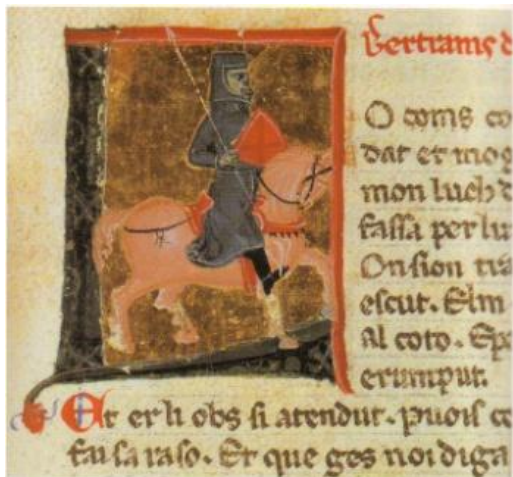 Bertrams d
O coms co
dat et mog
mon luch d
fassa per lui
On sion tra
escut. Elm
al coto. Esp
erumput.
Et er li obs si atendut. puois co
fai sa raso. Et que ges noi diga